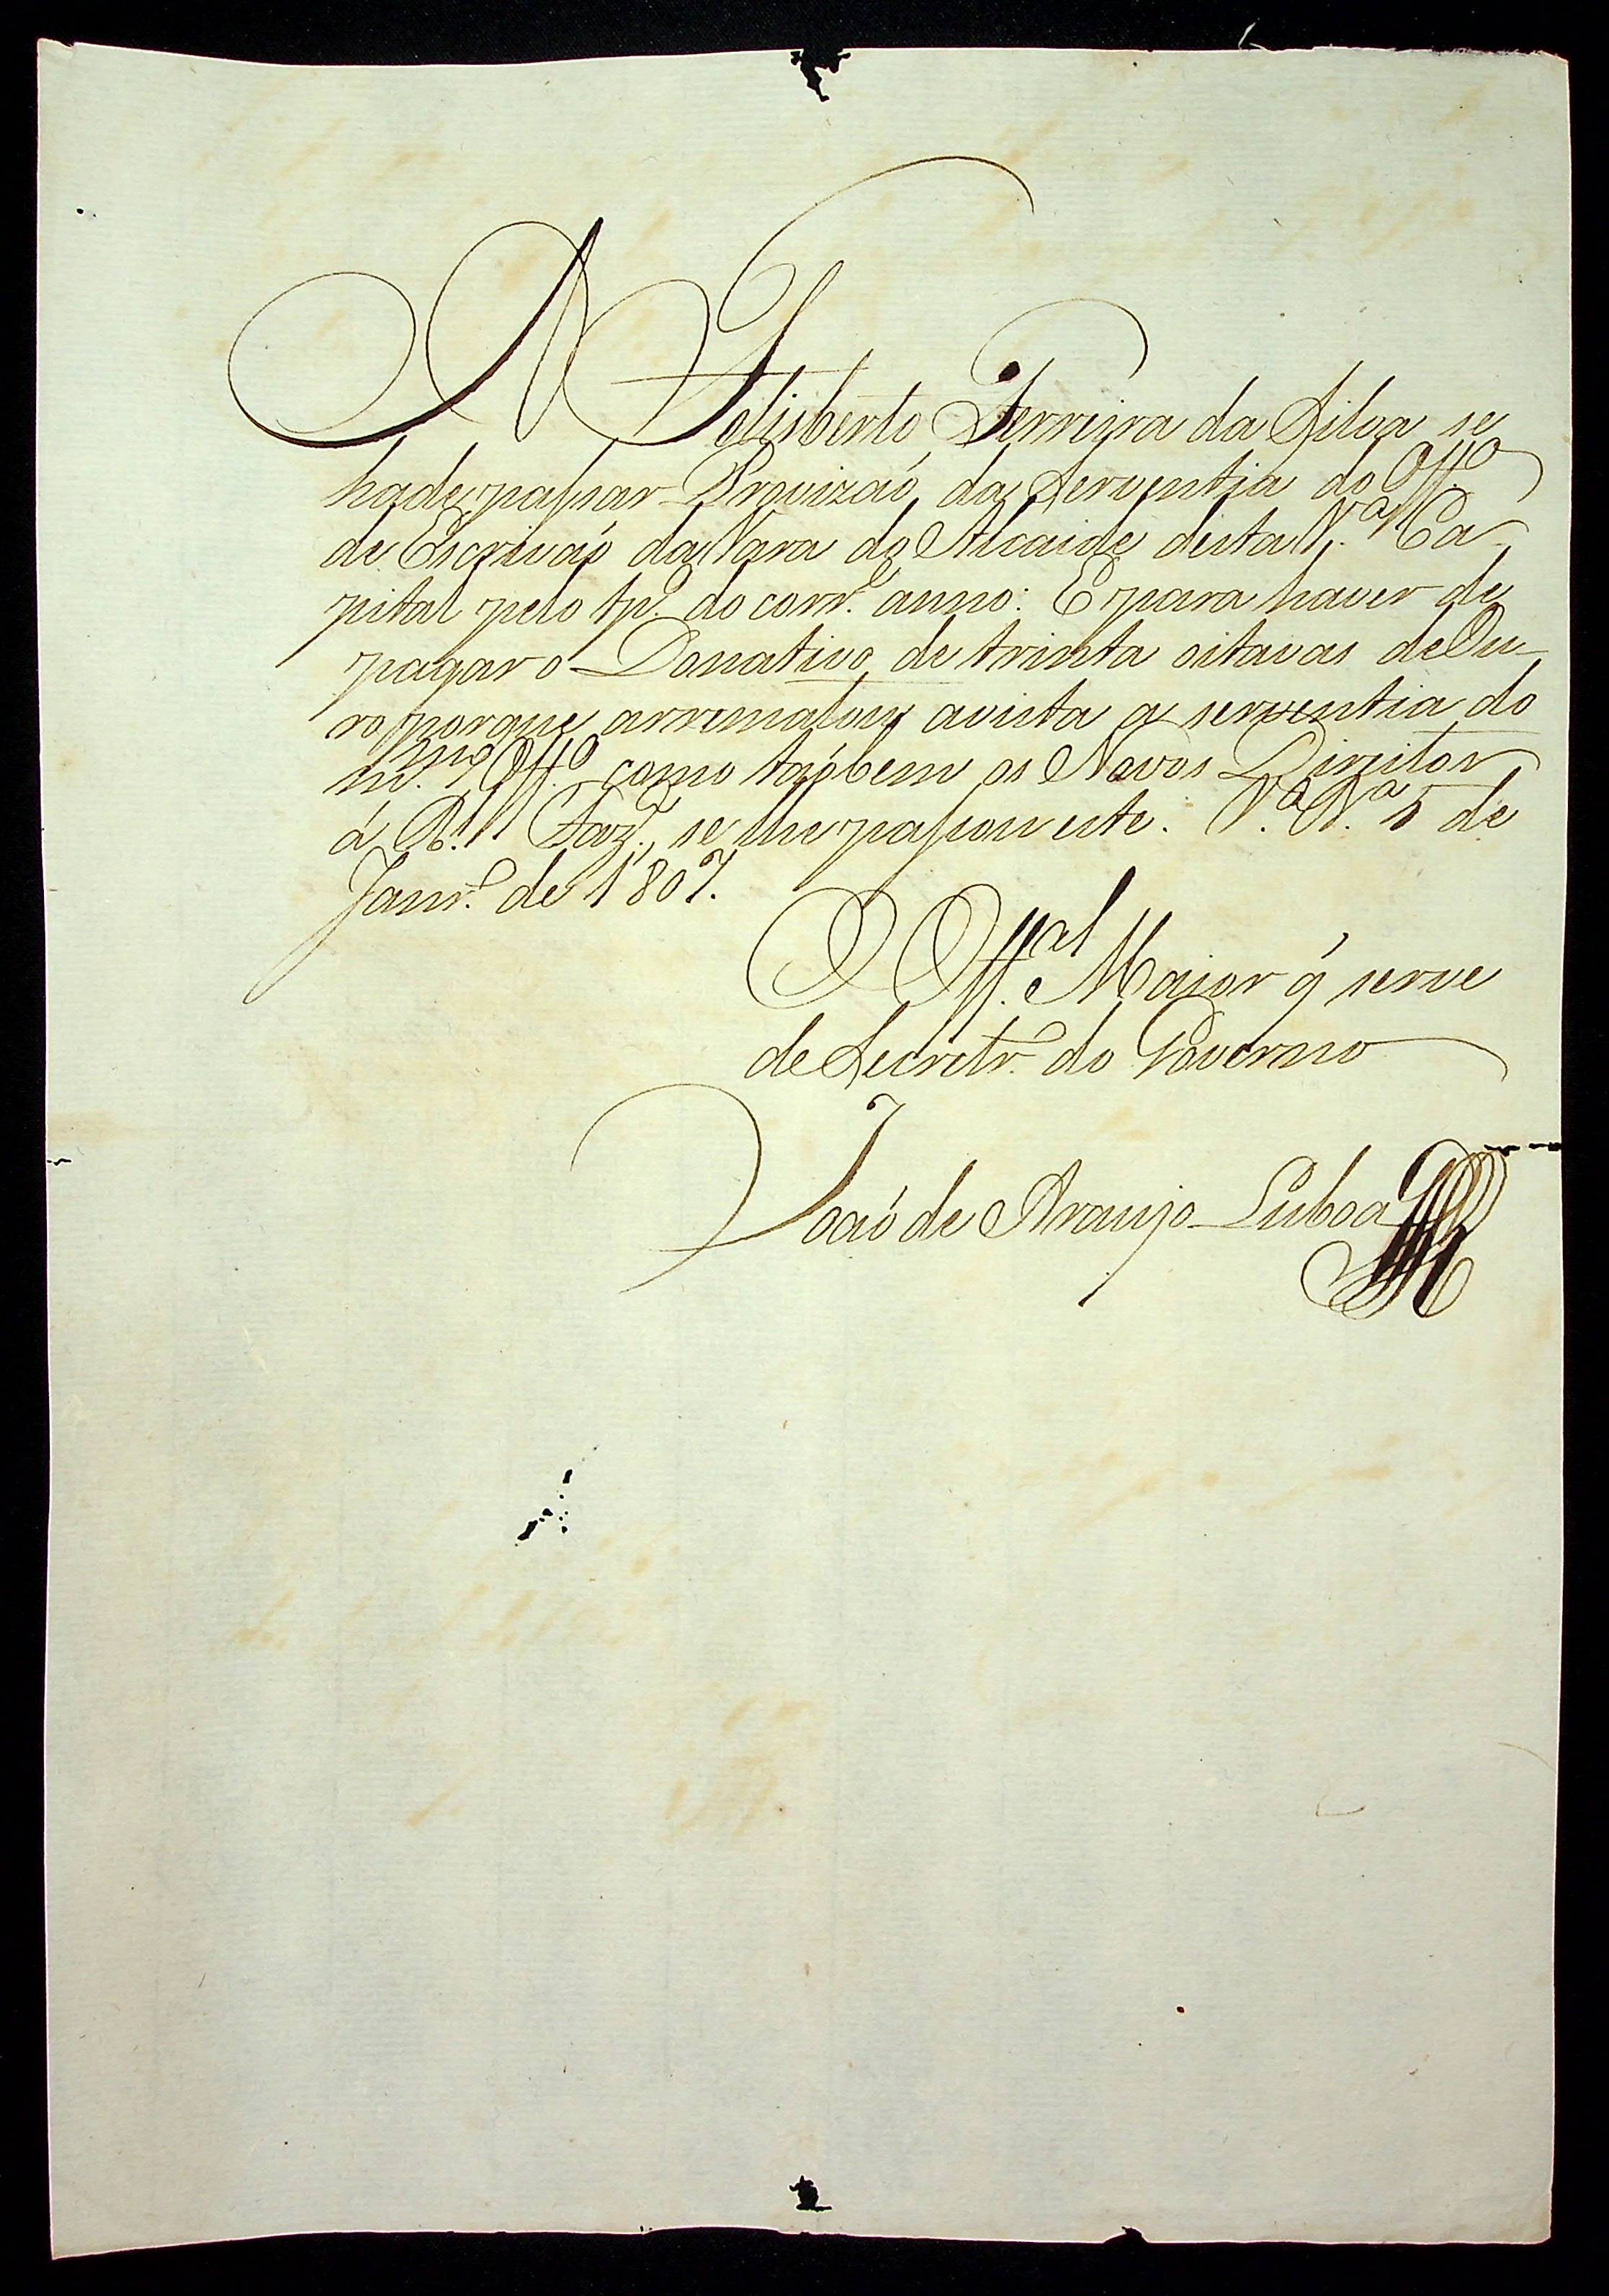 A Felisberto Ferreira da Silva se
hade passar Provizaõ da Serventia do Off.º
de Escrivaõ da Vara do Alcaide desta V.ª Ca
pital pelo tp.º do corr.e anno: E para haver de
pagar o Donativo de trinta oitavas de Ou
ro porque arrematou avista a serventia do
m.mo Off.º como taõbem os Novos Direitos
á R.l Faz.da se lhe passou este. V.ª B.ª 5 de
Janr.º de 1807.
O Off.al Maior q̃ serve
de Secretr.º do Governo
Joaõ de Araujo Lisboa